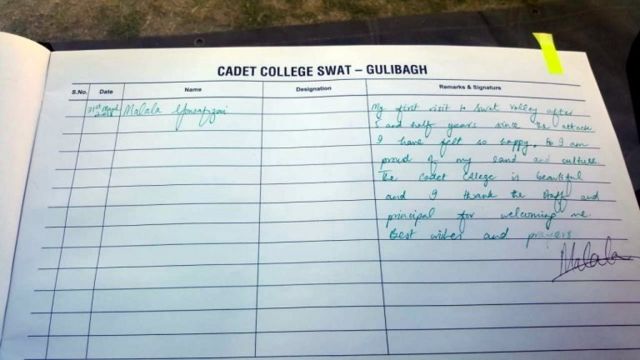 CADET COLLEGE SWAT – GULIBAGH
S.No. Date Name Designation Remarks & Signature
31st March 2018 Malala Yousafzai
My first visit to Swat Valley after
5 and half years since the attack
I have felt so happy. So I am
proud of my land and culture
The Cadet College is beautiful
and I thank the staff and
principal for welcoming me.
Best wishes and prayers
Malala